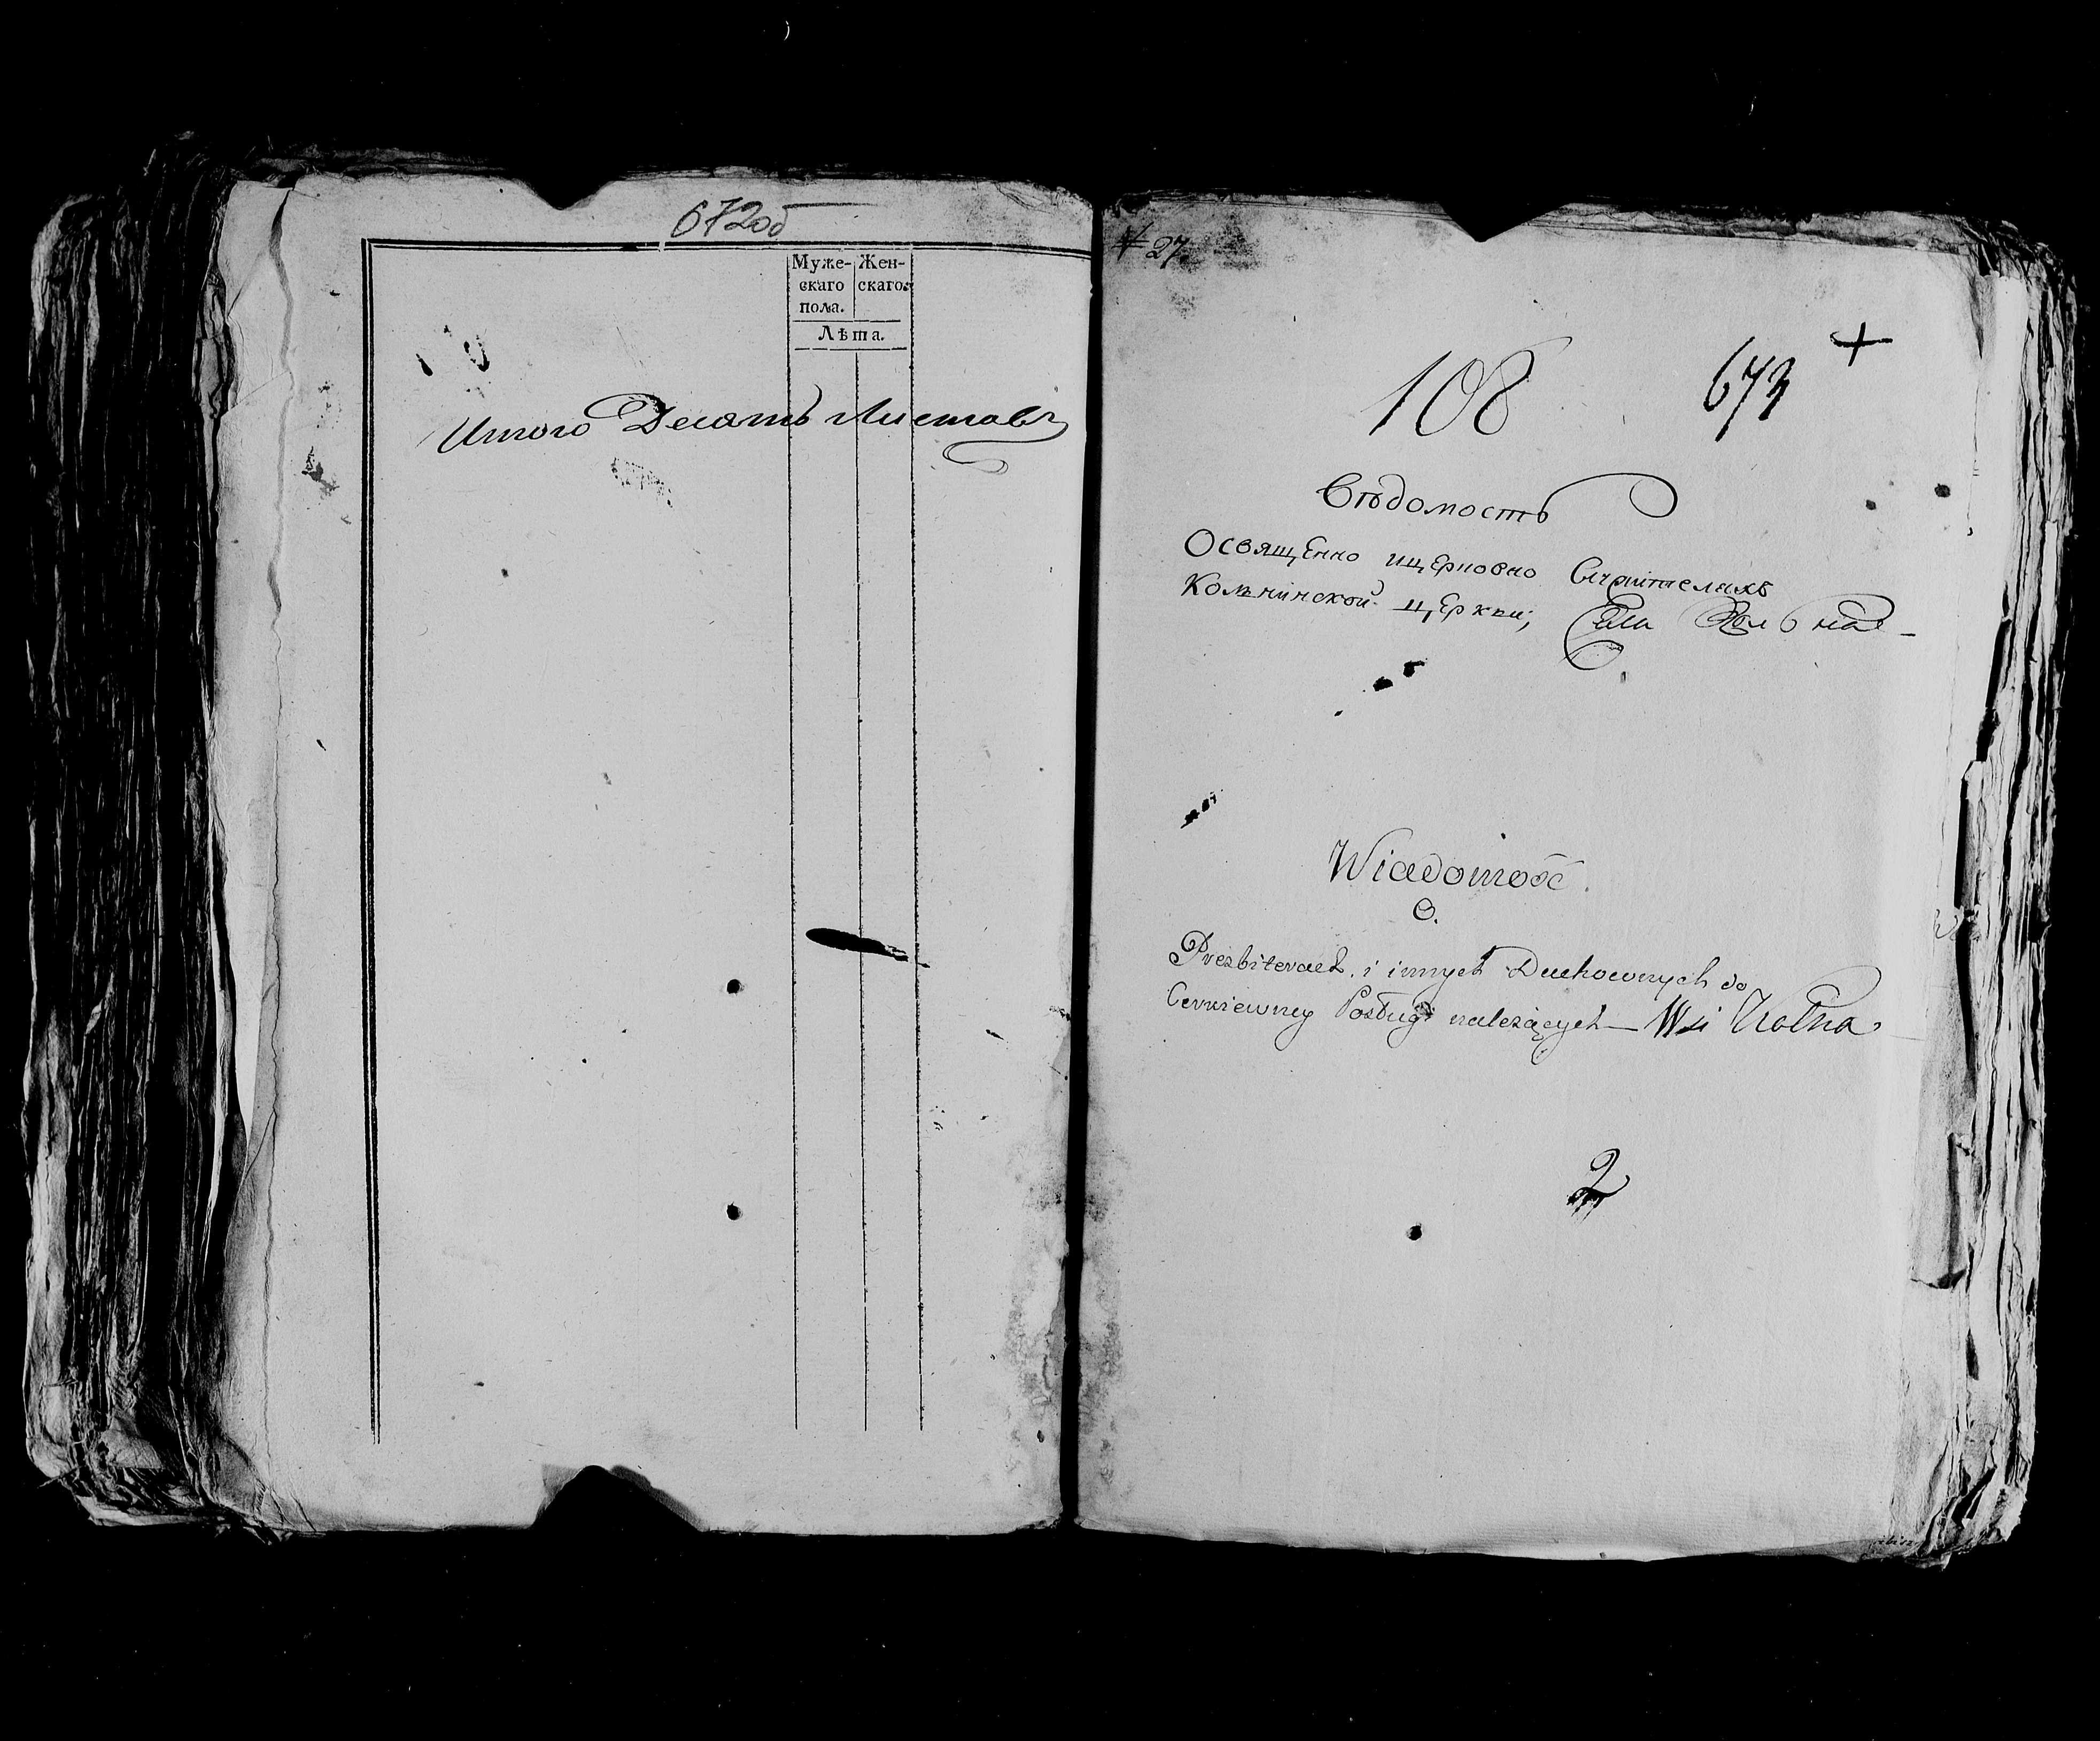 672об
Муже- Жен-
скаго скаго.
пола.
Лѣта.
Итого Десять Листовъ
# 27.
108 673 +
Вѣдомость
Освященно ицерковно Служителяхъ
Колнинской церкви, Села Кольна
Wiadomość
O.
Prezbiterach i innych Duchownych do
Cerkiewney Posługi należących Wsi Kolna
2